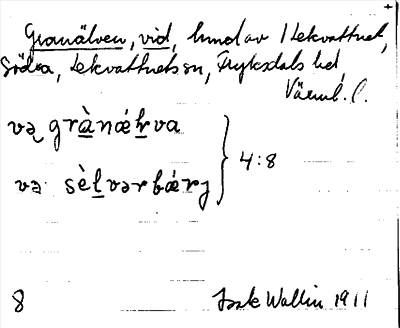 Granälven, vid, hmd av Lekvattnet,
Södra, Lekvattnets sn, Fryksdals hd,
Värml. l.
və grànǽḷva
və sèlvərbǽrj
4:8
8 Isak Wallin 1911